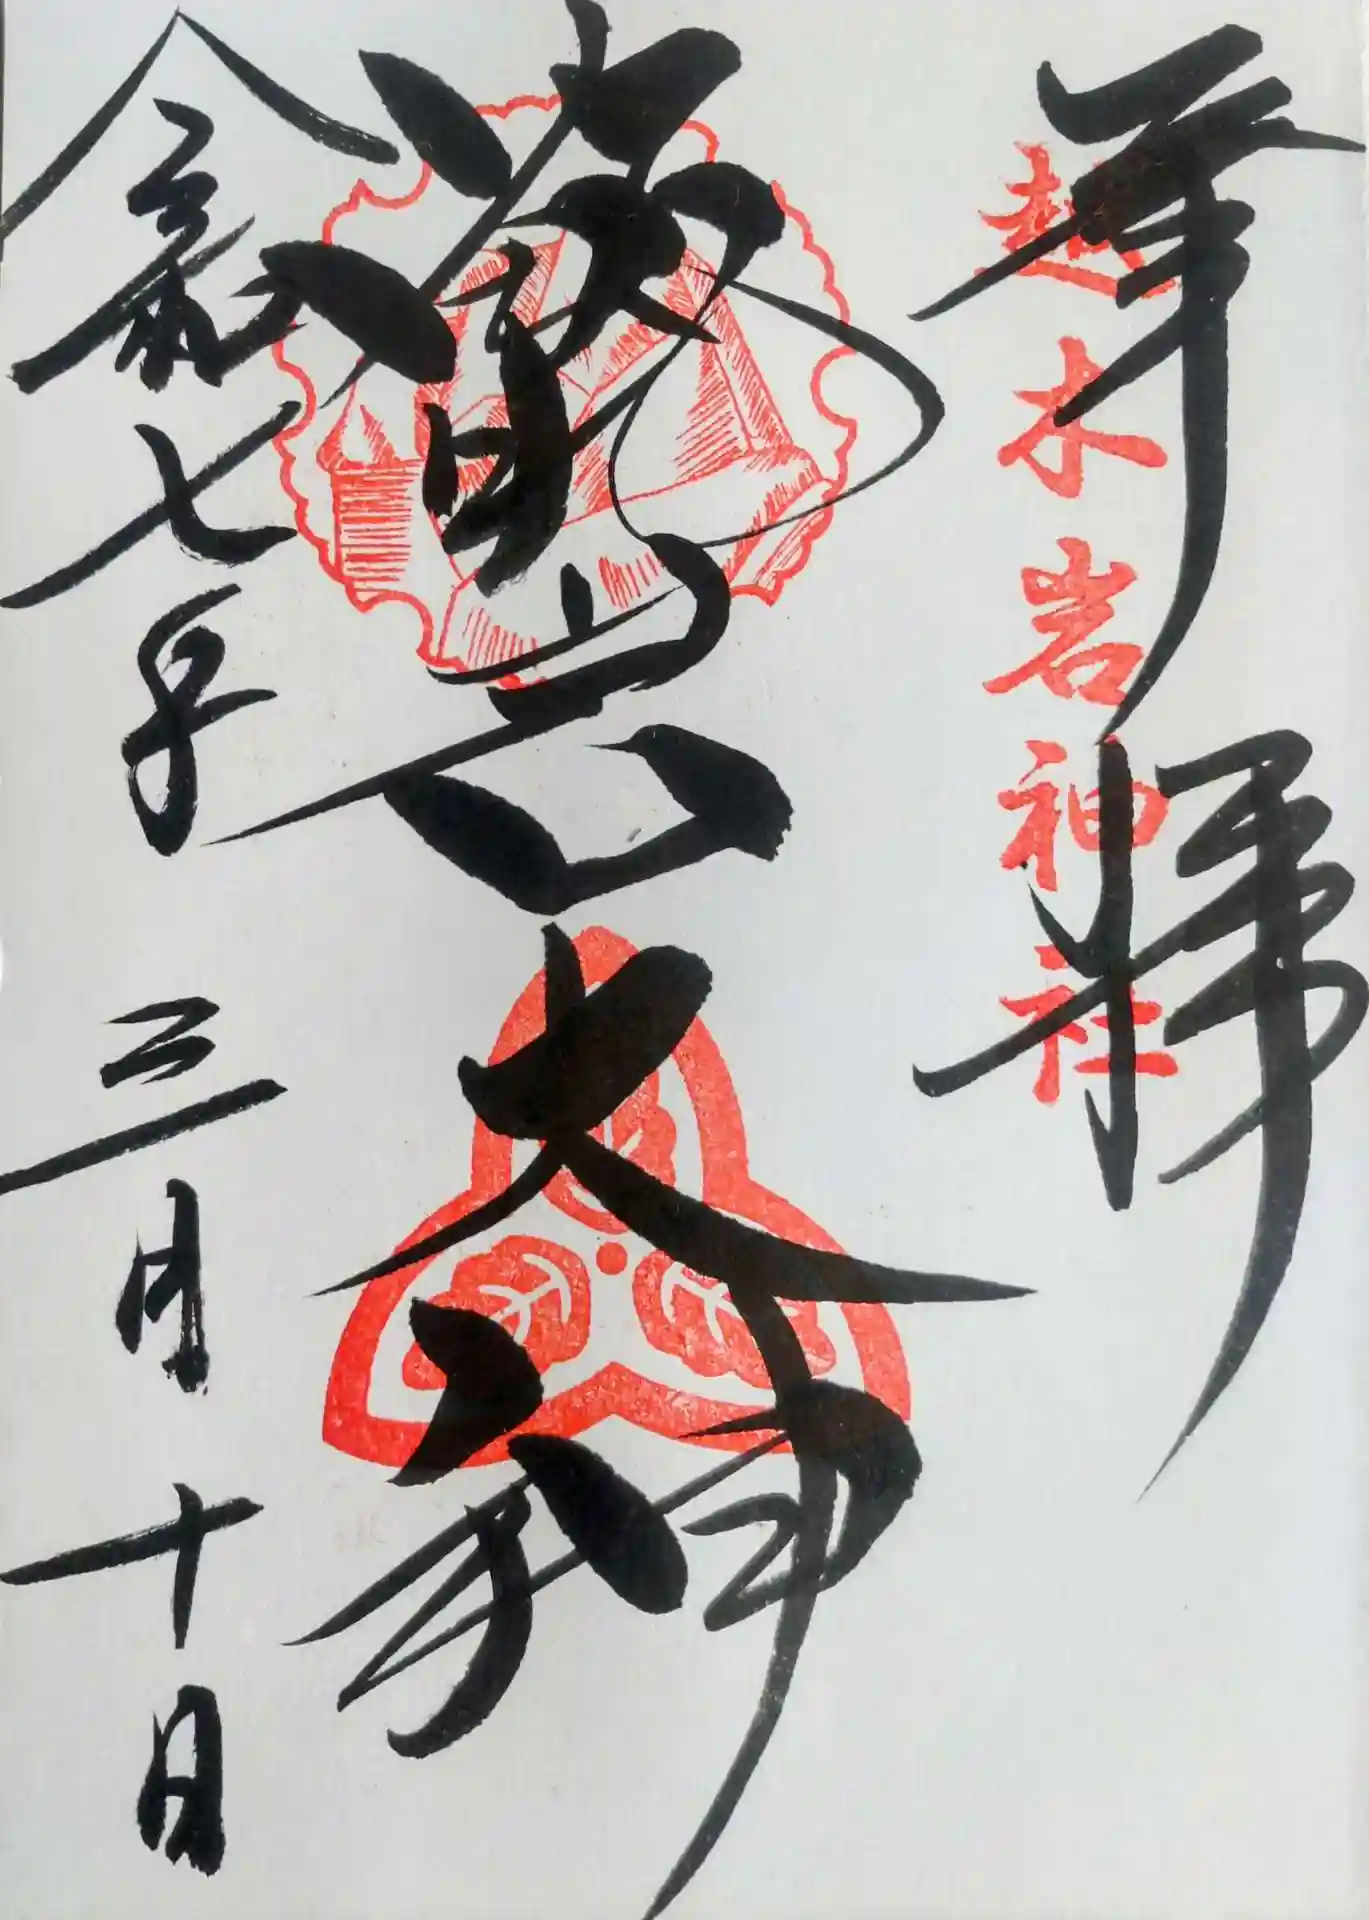 奉拝
越木岩神社
甑岩大神
令和七年 三月 十日